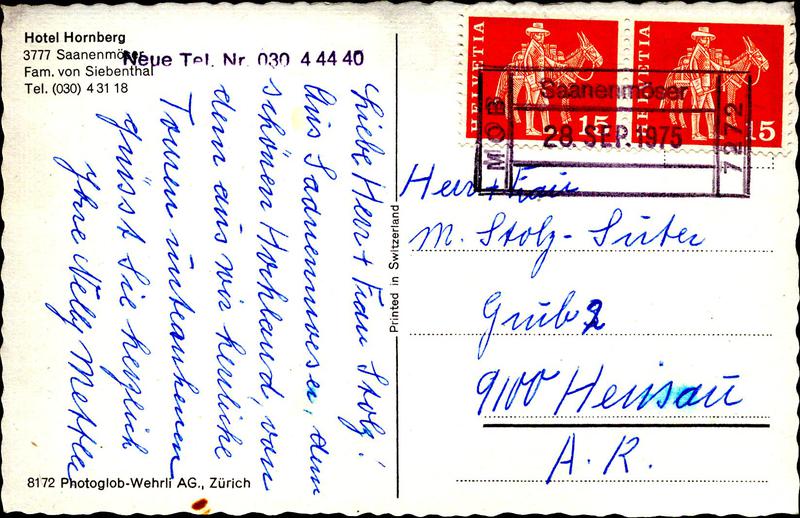 Hotel Hornberg
3777 Saanenmöser
Fam. von Siebenthal
Tel. (030) 4 31 18
Neue Tel. Nr. 030 4 44 40
Liebe Herr + Frau Stolz!
Aus Saanenmöser, dem
schönen Hochland, von
dem aus wir herrliche
Touren
grüsst Sie herzlich
Ihre Nelly Mettler
8172 Photoglob-Wehrli AG., Zürich
Printed in Switzerland
HELVETIA
15
HELVETIA
15
MOB
Saanenmöser
28. SEP. 1975
7272
Herr + Frau
M. Stolz-Suter
Grub 2
9100 Herisau
A. R.